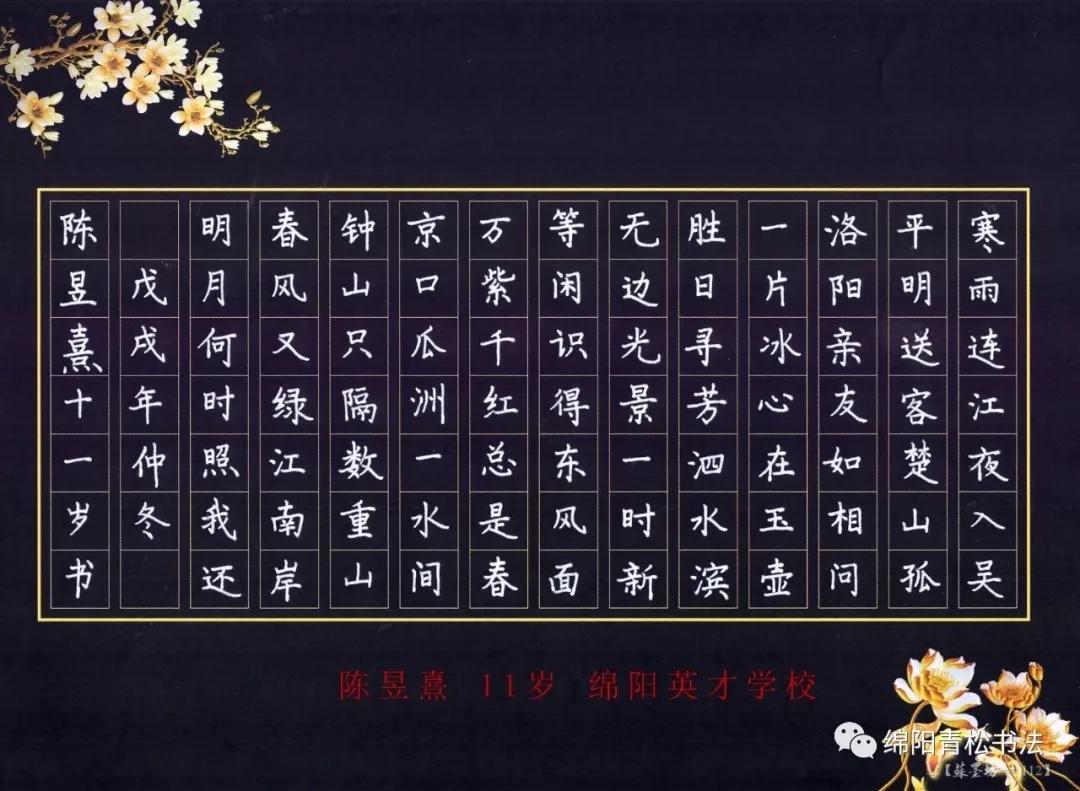 寒雨连江夜入吴
平明送客楚山孤
洛阳亲友如相问
一片冰心在玉壶
胜日寻芳泗水滨
无边光景一时新
等闲识得东风面
万紫千红总是春
京口瓜洲一水间
钟山只隔数重山
春风又绿江南岸
明月何时照我还
戊戌年仲冬
陈昱熹十一岁书
陈昱熹 11岁 绵阳英才学校
绵阳青松书法